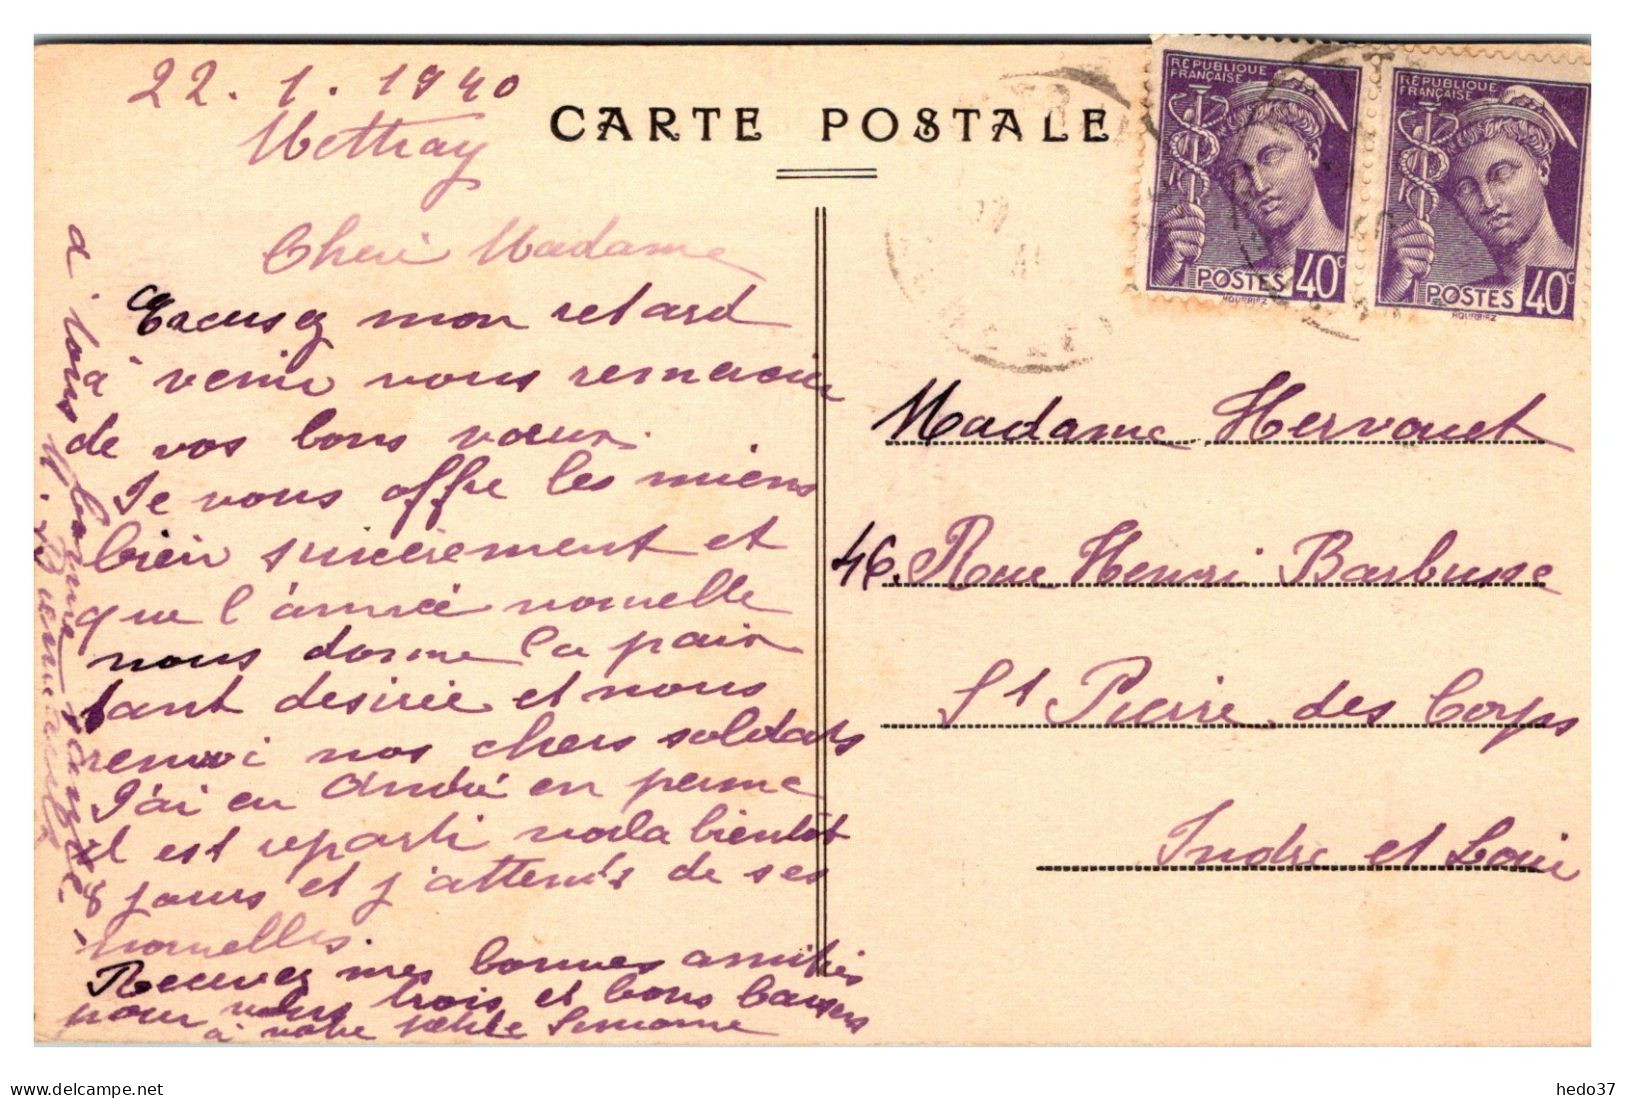 22.1.1940
Mettray
CARTE POSTALE
RÉPUBLIQUE
FRANÇAISE
POSTES 40c
HOURRIEZ
RÉPUBLIQUE
FRANÇAISE
POSTES 40c
HOURRIEZ
Cheri Madame
Excusez mon retard
à venir vous remercier
de vos bons voeux.
Je vous offre les miens
bien sincèrement et
que l'année nouvelle
nous donne la paix
tant desirée et nous
renvoi nos chers soldats
J'ai eu André en perme
il est reparti voila bientôt
8 jours et j'attends de ses
nouvelles.
Recevez mes bonnes amitiés
pour vous trois et bons baisers
à votre petite Simone
à tous
bonne santé
Madame Hervouet
46. Rue Henri Barbusse
St Pierre des Corps
Indre et Loire
delcampe.net
hedo37